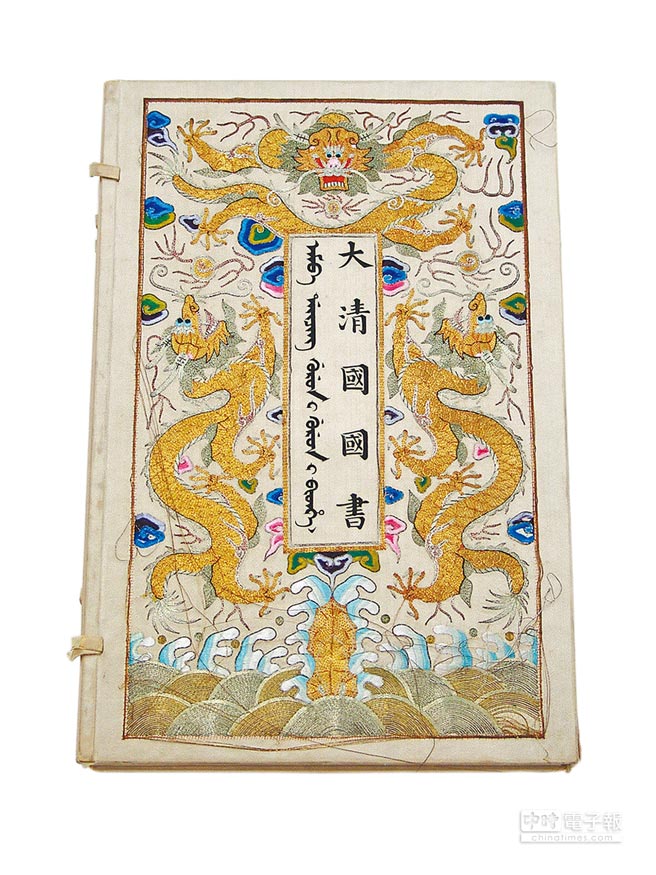 大清國國書
ᠠᠮᠪᠠ ᡩᠠᡳᠴᡳᠩ ᡤᡠᡵᡠᠨ ᡳ ᡤᡠᡵᡠᠨ ᡳ ᠪᡳᡨᡥᡝ
中時電子報
chinatimes.com